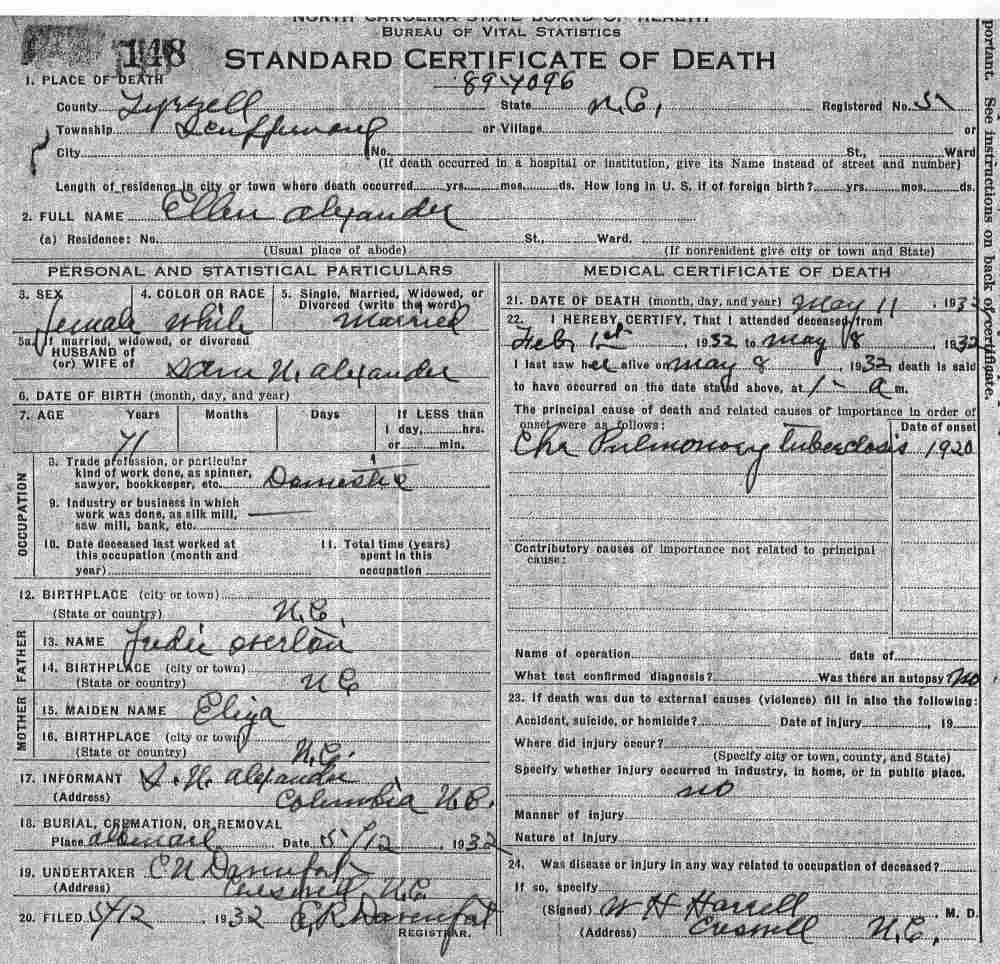 NORTH CAROLINA STATE BOARD OF HEALTH
BUREAU OF VITAL STATISTICS
148
STANDARD CERTIFICATE OF DEATH
1. PLACE OF DEATH
County Tyrrell State N.C. Registered No.
Township Scuppernong or Village or
City No. St., Ward
(If death occurred in a hospital or institution, give its Name instead of street and number)
Length of residence in city or town where death occurred yrs. mos. ds. How long in U. S. if of foreign birth? yrs. mos. ds.
2. FULL NAME Ellen Alexander
(a) Residence: No. St., Ward.
(Usual place of abode) (If nonresident give city or town and State)
portant. See instructions on back of certificate.
PERSONAL AND STATISTICAL PARTICULARS
3. SEX 4. COLOR OR RACE 5. Single, Married, Widowed, or
Divorced (write the word)
female white Married
5a. If married, widowed, or divorced
HUSBAND of
(or) WIFE of N. Alexander
6. DATE OF BIRTH (month, day, and year)
7. AGE Years Months Days If LESS than
1 day, hrs.
71 or min.
OCCUPATION
8. Trade profession, or particular
kind of work done, as spinner,
sawyer, bookkeeper, etc. Domestic
9. Industry or business in which
work was done, as silk mill,
saw mill, bank, etc.
10. Date deceased last worked at 11. Total time (years)
this occupation (month and spent in this
year) occupation
12. BIRTHPLACE (city or town)
(State or country) N.C.
FATHER
13. NAME Overton
14. BIRTHPLACE (city or town)
(State or country) N C
MOTHER
15. MAIDEN NAME Eliza
16. BIRTHPLACE (city or town)
(State or country) N.C.
17. INFORMANT S. N. Alexander
(Address) Columbia N.C.
18. BURIAL, CREMATION, OR REMOVAL
Place Date 5/12, 1932
19. UNDERTAKER Davenport
(Address) Creswell N.C.
20. FILED 5/12, 1932 C.R. Davenport
REGISTRAR.
MEDICAL CERTIFICATE OF DEATH
21. DATE OF DEATH (month, day, and year) May 11, 1932
22. I HEREBY CERTIFY, That I attended deceased from
Feb 1st, 1932 to May 8, 1932
I last saw her alive on May 8, 1932, death is said
to have occurred on the date stated above, at 1 - a m.
The principal cause of death and related causes of importance in order of
onset were as follows: Date of onset
Chr Pulmonary tuberclosis 1920
Contributory causes of importance not related to principal
cause:
Name of operation date of
What test confirmed diagnosis? Was there an autopsy no
23. If death was due to external causes (violence) fill in also the following:
Accident, suicide, or homicide? Date of injury, 19
Where did injury occur?
(Specify city or town, county, and State)
Specify whether injury occurred in industry, in home, or in public place.
no
Manner of injury
Nature of injury
24. Was disease or injury in any way related to occupation of deceased?
If so, specify
(Signed) W H Harrell, M. D.
(Address) Creswell N.C.